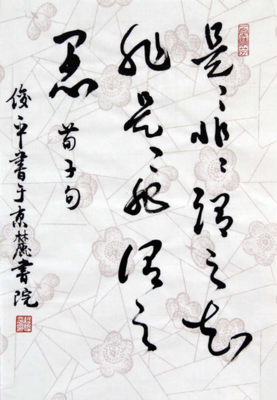 是〻非〻谓之知
非是〻非谓之
愚 荀子句
俊平書于京麓書院